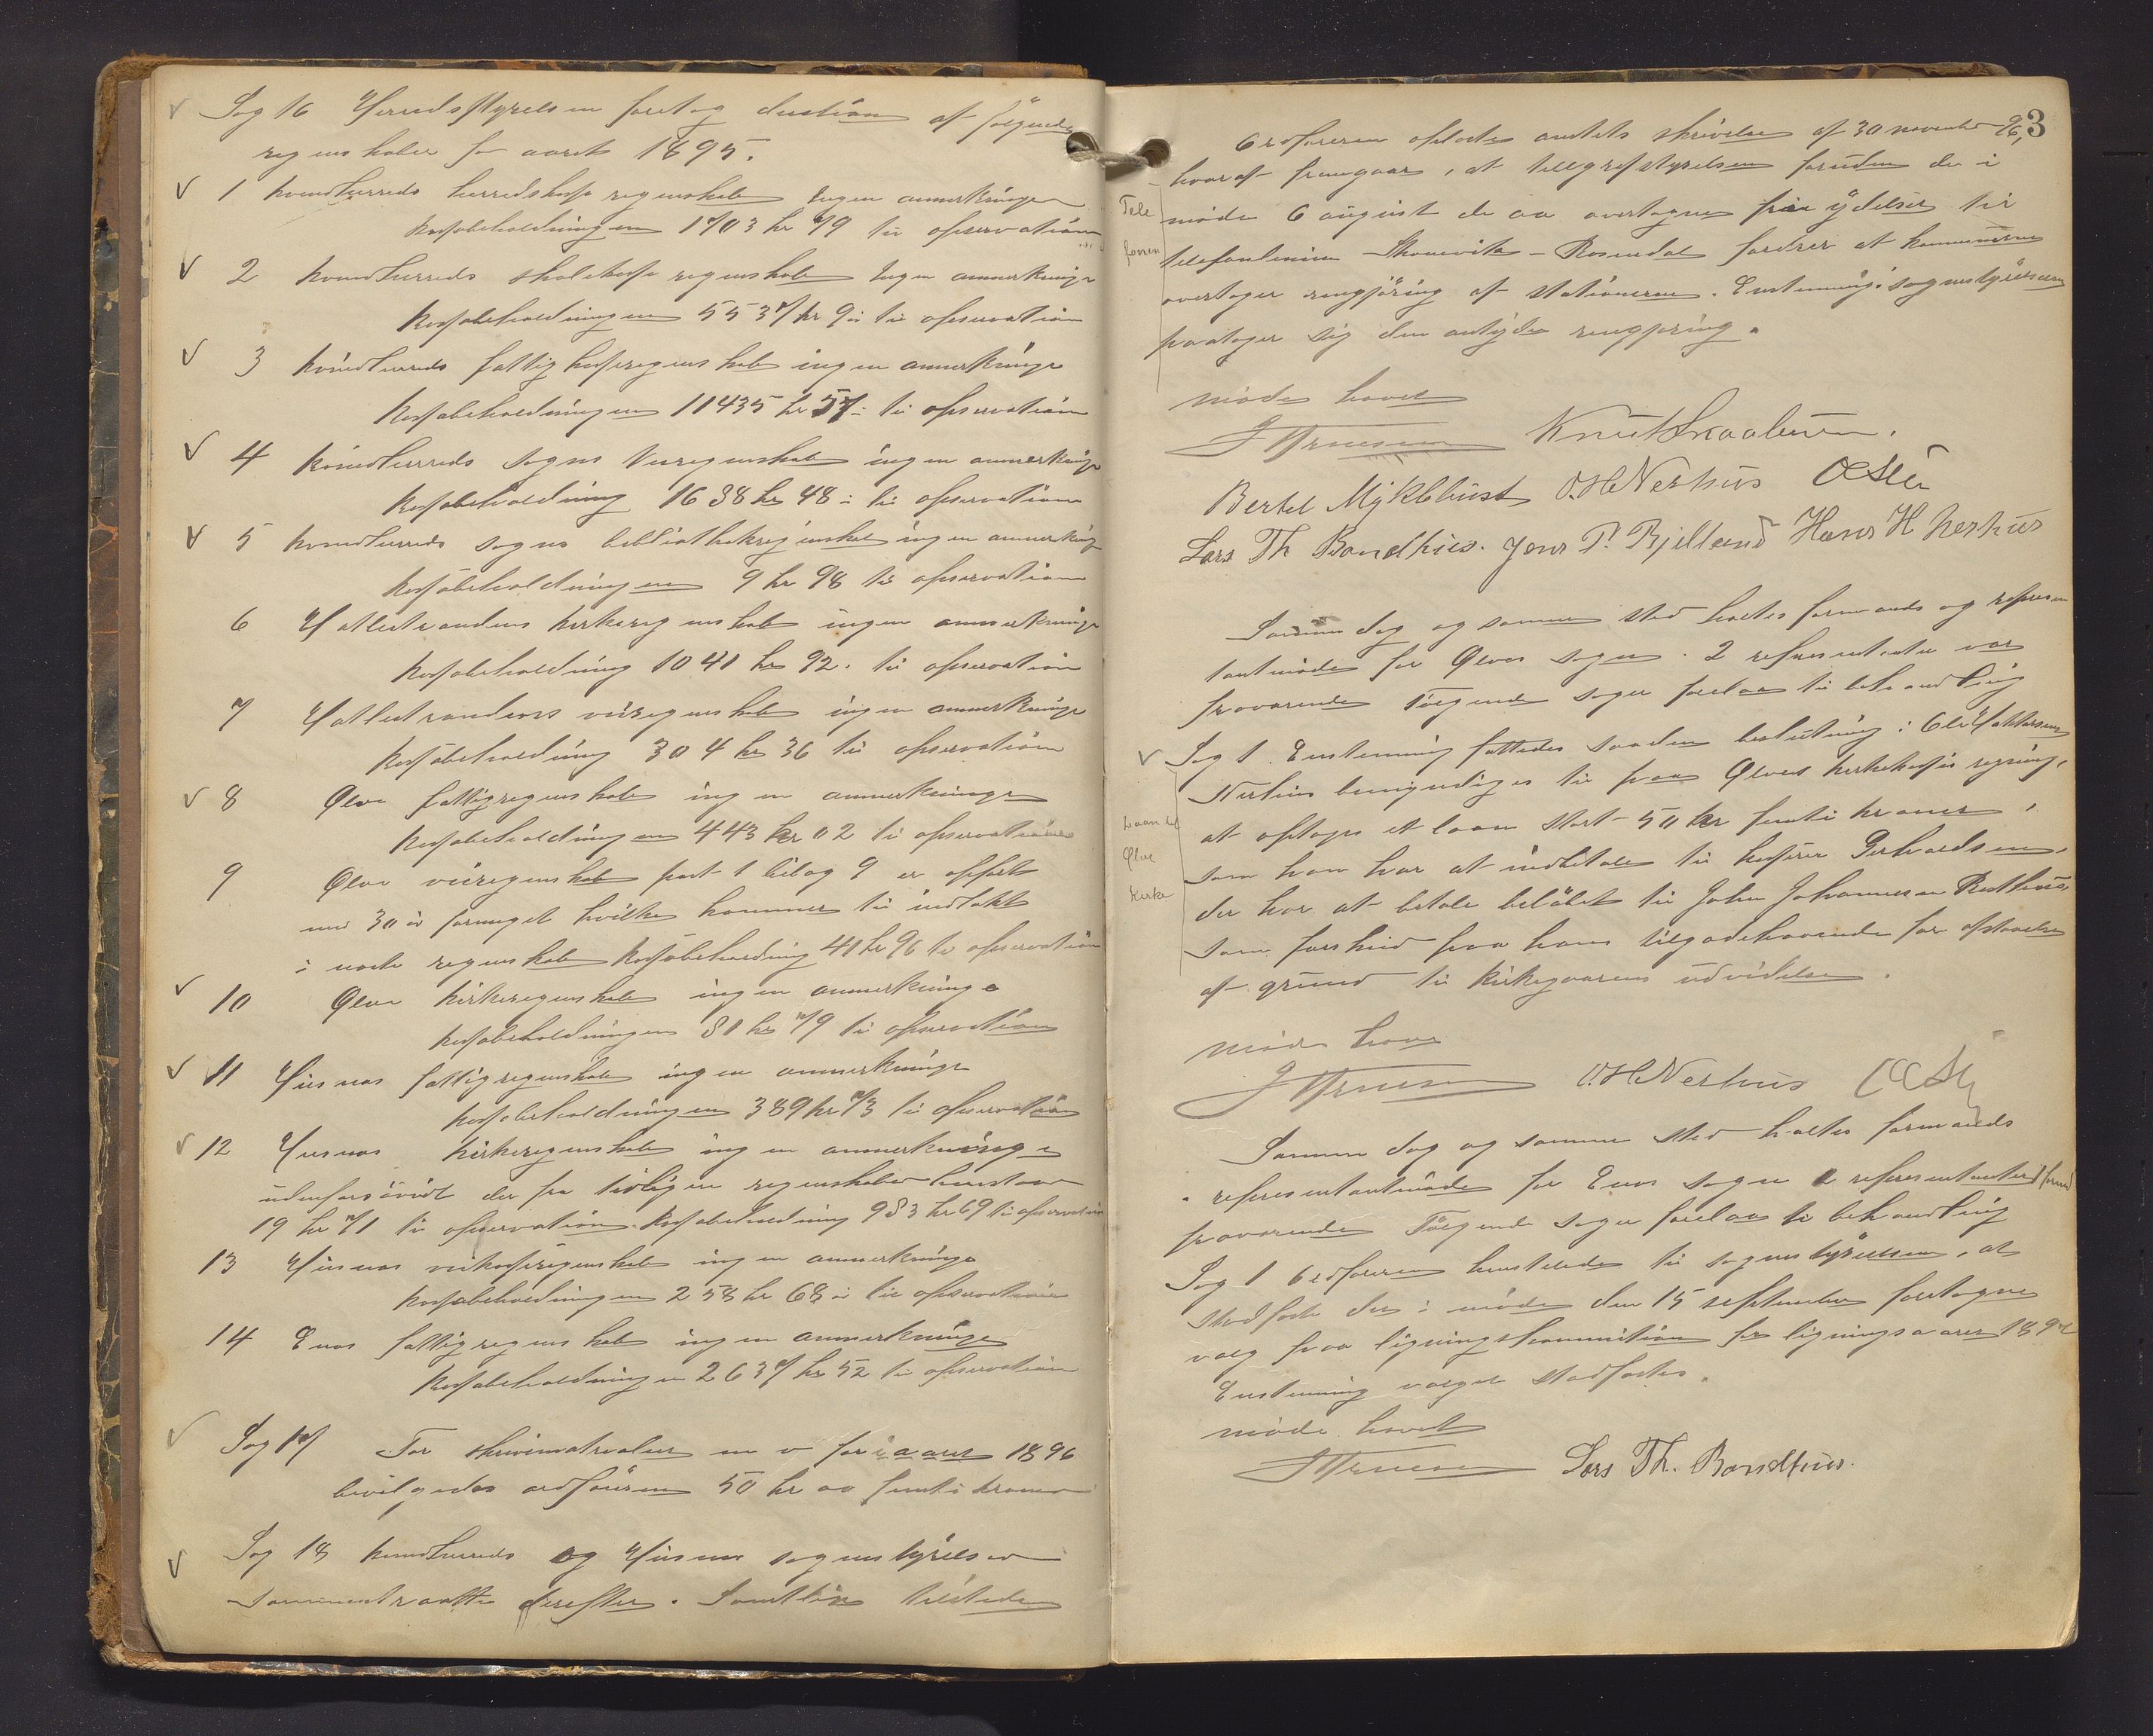 Sag 16 Herredsstyrelsen foretog decition af følgende
regnskaber for aaret 1895.
1 Kvindherreds herredskasse regnskab Ingen anmerkninger
Kassabeholdningen 1703 kr 79 til observation
2 Kvindherreds skolekasse regnskab Ingen anmerkninge
Kassabeholdningen 5537 kr 9 ø til observation
3 Kvindherreds fattigkasseregnskab ingen anmerkninge
Kassabeholdningen 11435 kr 57 ø til observation
4 Kvindherreds sogns veiregnskab ingen anmerkninge
Kassabeholdning 1638 kr 48 ø til observation
5 Kvindherreds sogns bibliothekregnskab ingen anmerkning
Kassabeholdningen 9 kr 98 til observation
6 Hatlestrandens kirkeregnskab ingen anmerkninge
Kassabeholdning 1041 kr 92. til observation
7 Hatlestrandens veiregnskab ingen anmerkninge
Kassabeholdning 304 kr 36 til observation
8 Ølve fattigregnskab ingen anmerkninge
Kassabeholdningen 443 kr 02 til observation
9 Ølve veiregnskab post 1 bilag 9 er opført
med 30 ø formeget hvilke kommer til indtækt
i næste regnskab Kassabeholdning 41 kr 96 til observation
10 Ølve kirkeregnskab ingen anmerkninge
Kassabeholdningen 81 kr 79 til observation
11 Husnæs fattigregnskab ingen anmerkninge
Kassabeholdningen 389 kr 73 til observation
12 Husnæs kirkeregnskab ingen anmerkninge
udenforsaavidt der fra tidligere regnskaber henstaar
19 kr 71 til observation. Kassabeholdning 983 kr 69 til observation
13 Husnæs veikasseregnskab ingen anmerkninge
Kassabeholdningen 258 kr 68 ø til observation
14 Enes fattigregnskab ingen anmerkninge
Kassabeholdningen 2637 kr 52 til observation
Sag 17 For skrivematrialier m v for aaret 1896
bevilgedes ordføreren 50 kr femti kroner
Sag 18 Kvindherreds og Husnæs sognestyrelser
sammentraatte derefter. Samtlige tilstede
3
Ordføreren oplæste amtets skrivelse af 30 november 96,
hvoraf fremgaar, at telegrafstyrelsen foruden de i
Tele
møde 6 august d aa overtagne frie ydelser til
fonen
telefonlinien Skonevik - Rosendal fordrer at kommunerne
overtager rengjøring af stationerne. Enstemmig: sognestyrelserne
paatager sig den antyde rengjøring.
møde hævet
Knut Skaaluren.
Bertel Myklebust O. H Nerhus
Lars Th Bondhus. Jens P. Bjelland Hans H. Nerhus
Samme dag og samme sted holdtes formands og represen
tantmøde for Ølves sogn. 2 representanter var
fraværende Følgende sager forelaa til behandling
Sag 1. Enstemmig fattedes saadan beslutning: Ole Haktorsen
Nerhus bemyndiges til paa Ølves kirkekasses regning,
at optage et laan stort - 50 kr femti kroner,
Laan til
Ølve
Kirke
som han har at indbetale til kasserer Gerhardsen,
der har at betale beløbet til John Johannesen
som forskud paa hans tilgodehavende for afstaaelse
af grund til kirkegaarens udvidelse.
møde hævet
O. H Nerhus
Samme dag og samme sted holdtes formands
representantmøde for Enes sogn
fraværende Følgende sager forelaa til behandling
Sag 1 Ordføreren henstillede til sognestyrelsen, at
stadfæste det i møde den 15 september foretagne
valg paa ligningskommition for ligningsaaret 1897
Enstemmig valget stadfæstes.
møde hævet
Lars Th. Bondhus.